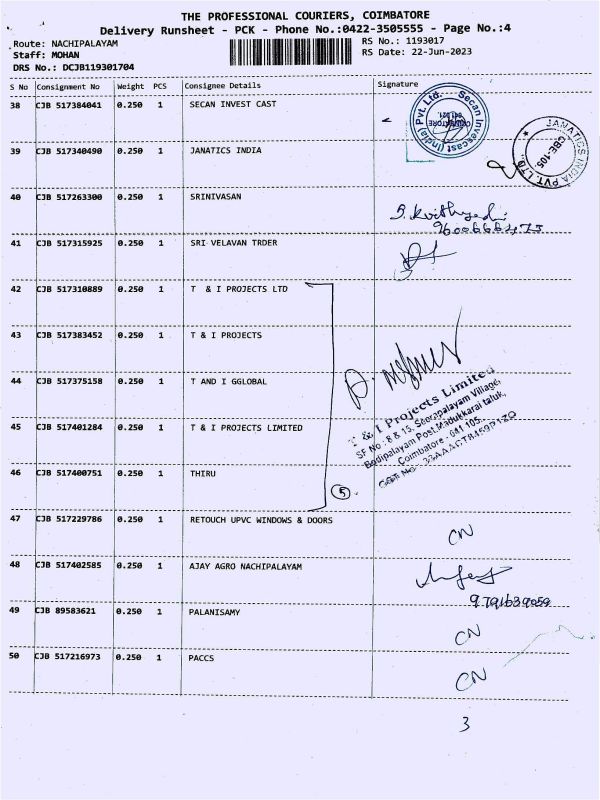 THE PROFESSIONAL COURIERS, COIMBATORE
Delivery Runsheet - PCK - Phone No.:0422-3505555 - Page No.:4
Route: NACHIPALAYAM
RS No.: 1193017
Staff: MOHAN
RS Date: 22-Jun-2023
DRS No.: DCJB119301704
S No Consignment No Weight PCS Consignee Details Signature
38 CJB 517384041 0.250 1 SECAN INVEST CAST
Secan Invescast (India) Pvt. Ltd.
COIMBATORE
641 021
39 CJB 517340490 0.250 1 JANATICS INDIA
JANATICS INDIA PVT. LTD.
CBE-105.
40 CJB 517263300 0.250 1 SRINIVASAN
41 CJB 517315925 0.250 1 SRI VELAVAN TRDER
42 CJB 517310889 0.250 1 T & I PROJECTS LTD
43 CJB 517383452 0.250 1 T & I PROJECTS
44 CJB 517375158 0.250 1 T AND I GGLOBAL
45 CJB 517401284 0.250 1 T & I PROJECTS LIMITED
T & I Projects Limited
SF No : 8 & 15, Seerapalayam Village,
Bodipalayam Post, Madukkarai taluk,
Coimbatore - 641 105.
46 CJB 517400751 0.250 1 THIRU
5
47 CJB 517229786 0.250 1 RETOUCH UPVC WINDOWS & DOORS
CN
48 CJB 517402585 0.250 1 AJAY AGRO NACHIPALAYAM
9791639059
49 CJB 89583621 0.250 1 PALANISAMY
CN
50 CJB 517216973 0.250 1 PACCS
CN
3